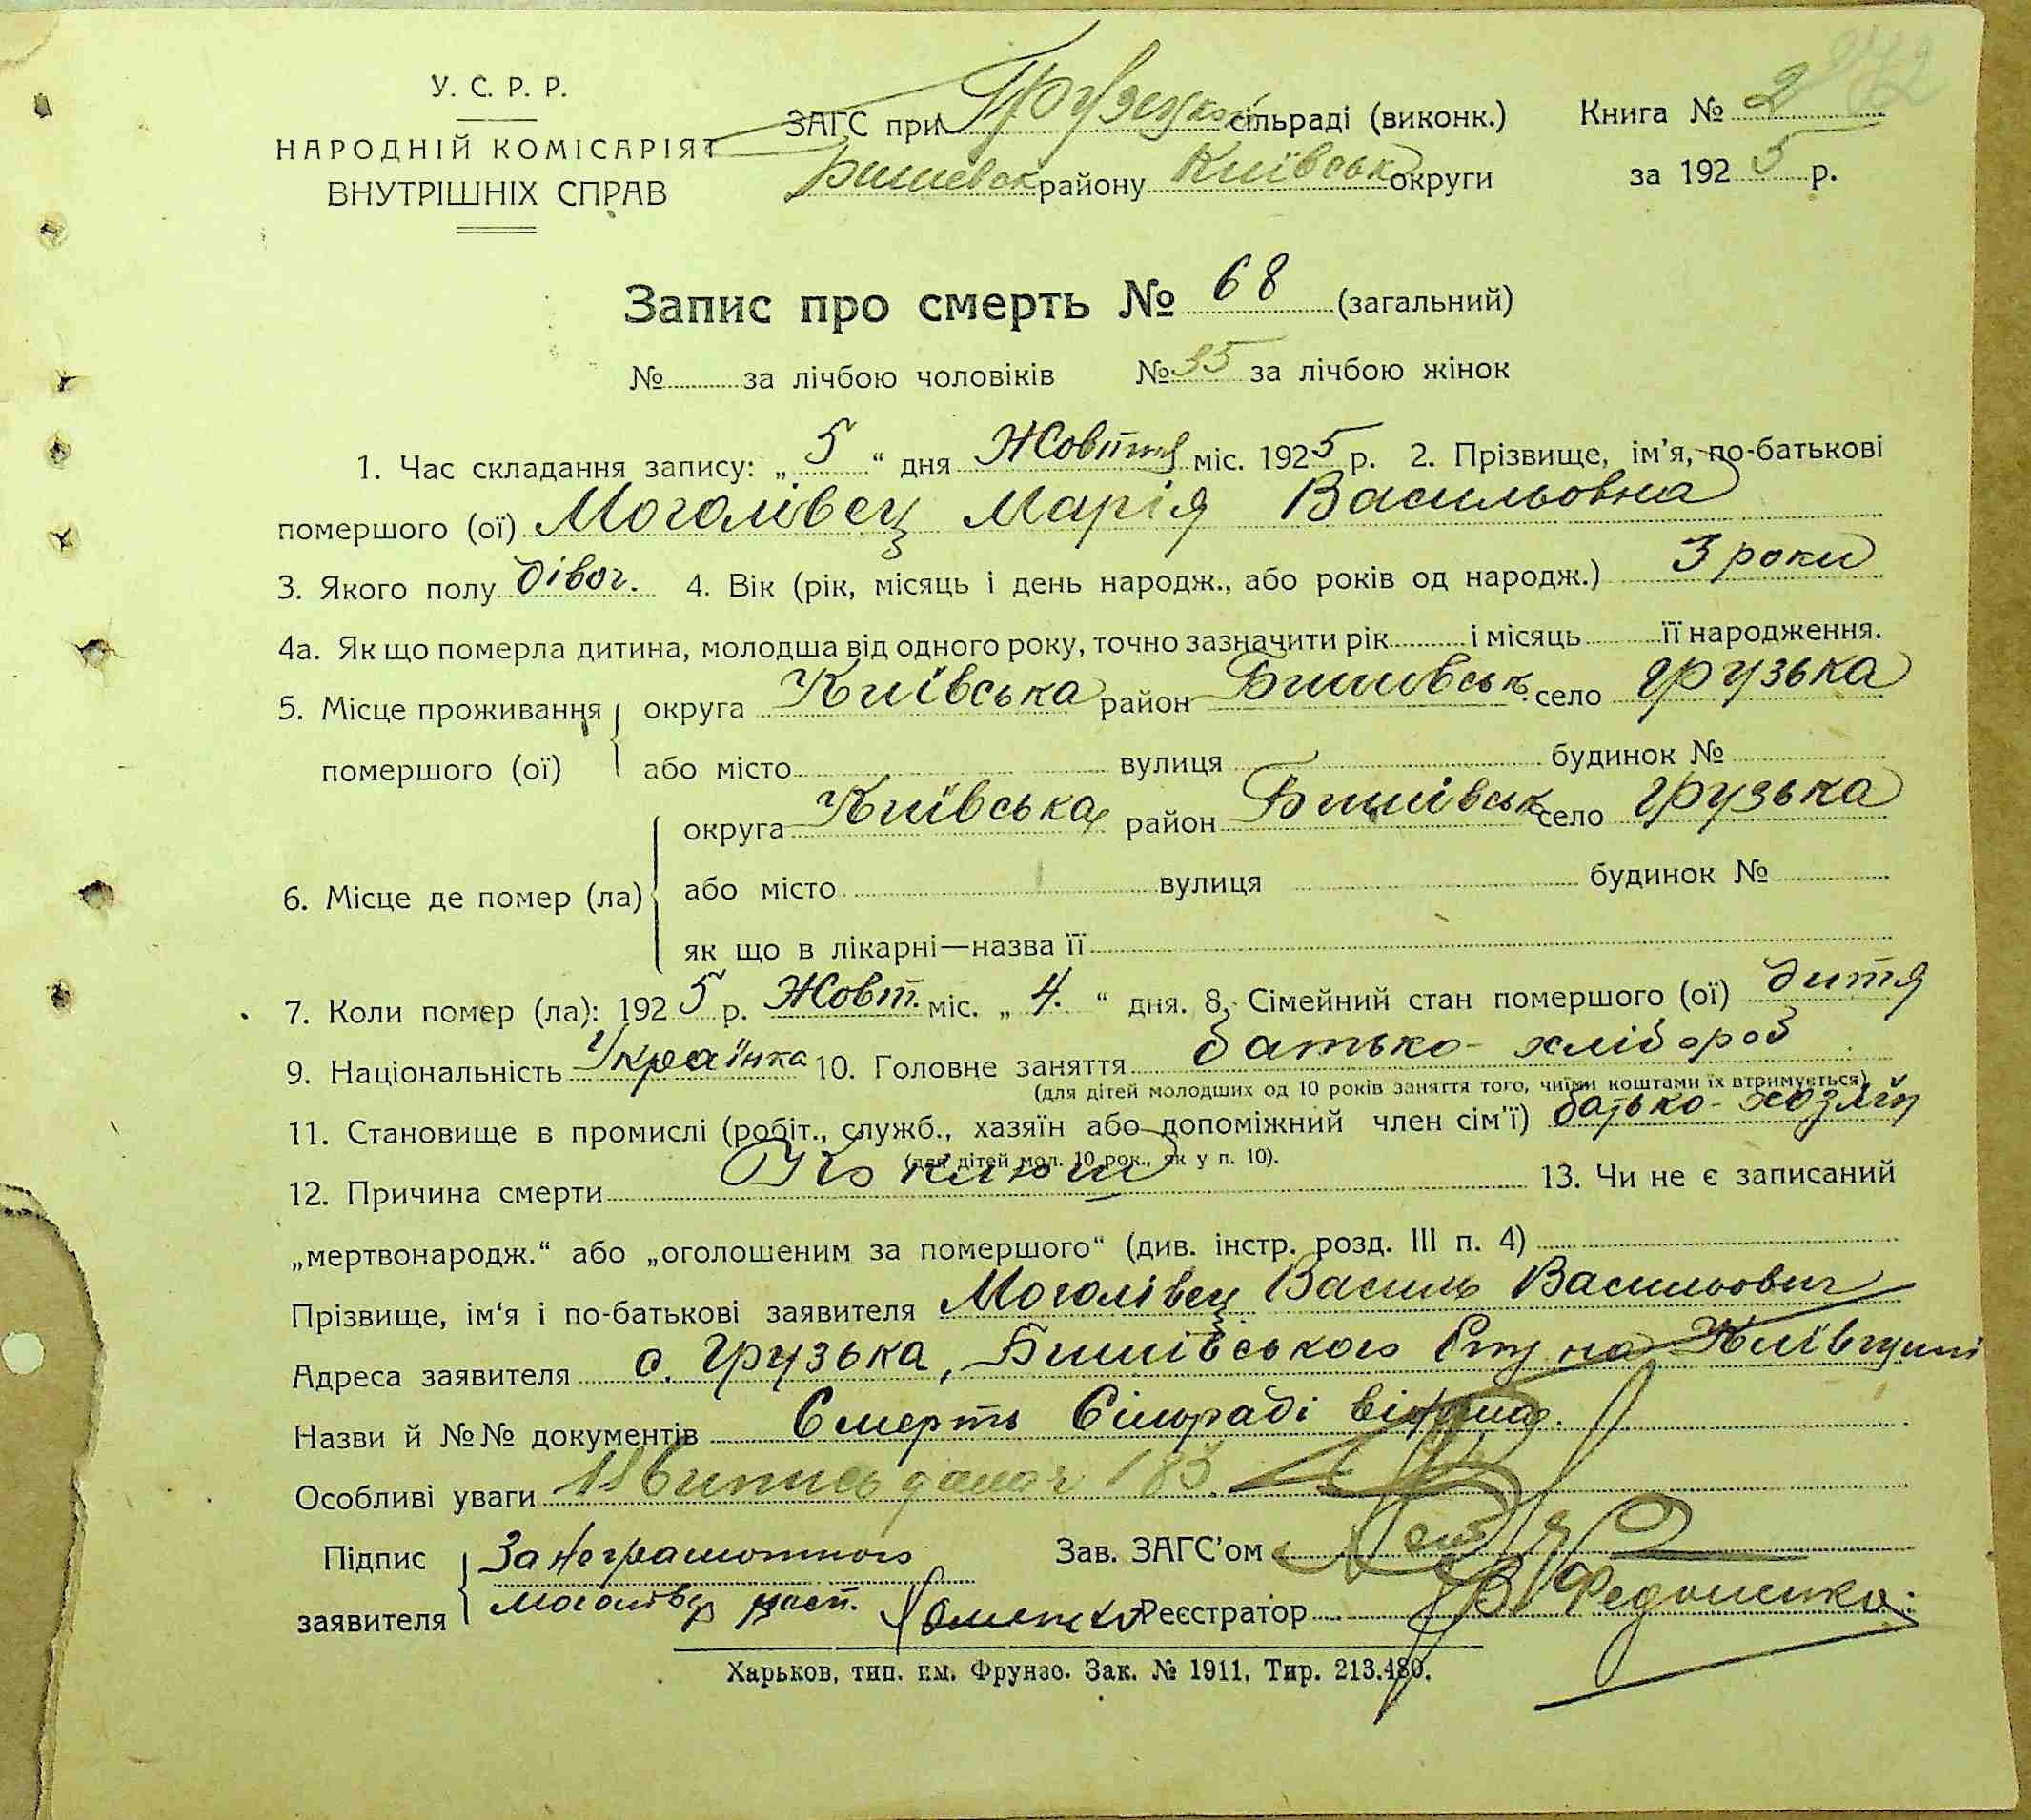 272
У. С. Р. Р.
НАРОДНІЙ КОМІСАРІЯТ
ВНУТРІШНІХ СПРАВ
ЗАГС при Грузцкой сільраді (виконк.) Книга № 2
Бишевск району Київськ округи за 1925 р.
Запис про смерть № 68 (загальний)
№ за лічбою чоловіків № 35 за лічбою жінок
1. Час складання запису: „ 5 “ дня Жовтня міс. 1925 р. 2. Прізвище, ім'я, по-батькові
помершого (ої) Моголівец Марія Васильовна
3. Якого полу дівоч. 4. Вік (рік, місяць і день народж., або років од народж.) 3 роки
4а. Як що померла дитина, молодша від одного року, точно зазначити рік і місяць її народження.
5. Місце проживання помершого (ої) округа Київська район Бишівськ. село Грузька
або місто вулиця будинок №
6. Місце де помер (ла) округа Київська район Бишівськ село Грузька
або місто вулиця будинок №
як що в лікарні—назва її
7. Коли помер (ла): 1925 р. Жовт. міс. „ 4. “ дня. 8. Сімейний стан помершого (ої) дитя
9. Національність Українка 10. Головне заняття батько - хлібороб
(для дітей молодших од 10 років заняття того, чиїми коштами їх втримується)
11. Становище в промислі (робіт., служб., хазяїн або допоміжний член сім'ї) батько - хозяїн
(для дітей мол. 10 рок., як у п. 10).
12. Причина смерти Коклюш 13. Чи не є записаний
„мертвонародж.“ або „оголошеним за помершого“ (див. інстр. розд. III п. 4)
Прізвище, ім'я і по-батькові заявителя Моголівец Василь Васильович
Адреса заявителя с. Грузька, Бишівського Р-ну на Київщині
Назви й №№ документів Смерть Сільраді відома.
Особливі уваги Випись
Підпис заявителя За неграмотного
Моголівец расп. Зав. ЗАГС'ом
Реєстратор В. Федоненко
Харьков, тип. им. Фрунзе. Зак. № 1911. Тир. 213.480.